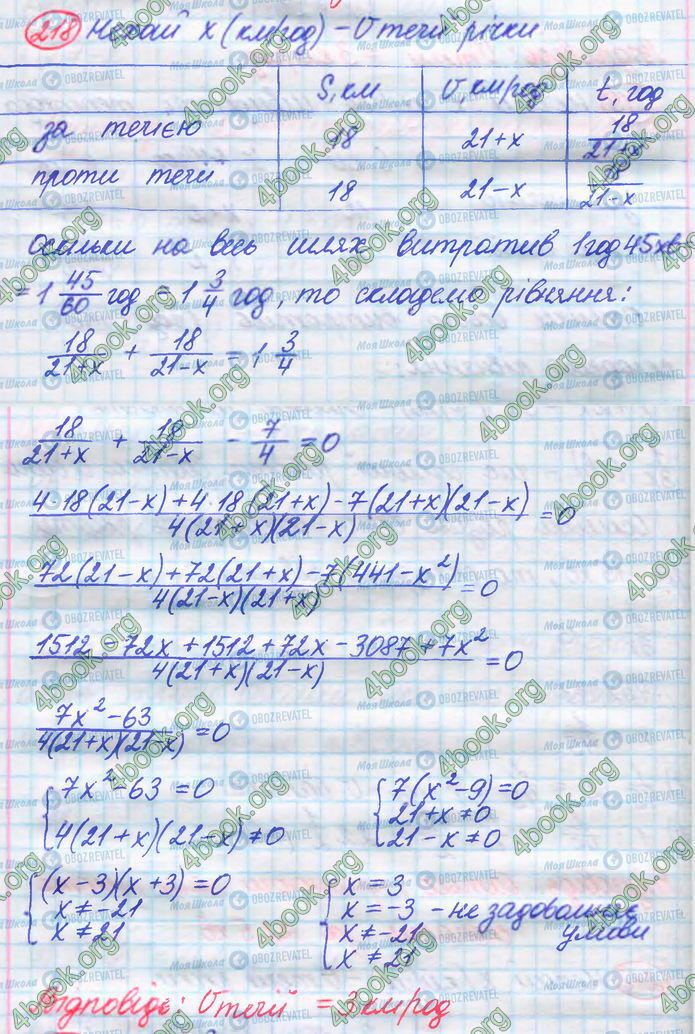 218 Нехай x (км/год) – υ течії річки
S, км υ км/год t, год
за течією 18 21+x 18/(21+x)
проти течії 18 21-x 18/(21-x)
оскільки на весь шлях витратив 1 год 45 хв
= 1 45/60 год = 1 3/4 год, то складемо рівняння:
18/(21+x) + 18/(21-x) = 1 3/4
18/(21+x) + 18/(21-x) - 7/4 = 0
(4·18(21-x)+4·18(21+x)-7(21+x)(21-x))/(4(21+x)(21-x)) = 0
(72(21-x)+72(21+x)-7(441-x²))/(4(21-x)(21+x)) = 0
(1512-72x+1512+72x-3087+7x²)/(4(21+x)(21-x)) = 0
(7x²-63)/(4(21+x)(21-x)) = 0
{ 7x²-63 = 0 { 7(x²-9) = 0
4(21+x)(21-x) ≠ 0 21+x ≠ 0
21-x ≠ 0
{ (x-3)(x+3) = 0 { x = 3
x ≠ -21 x = -3 - не задовольняє
x ≠ 21 x ≠ -21 умови
x ≠ 21
Відповідь: υ течії = 3 км/год
4book.org
Моя Школа
OBOZREVATEL